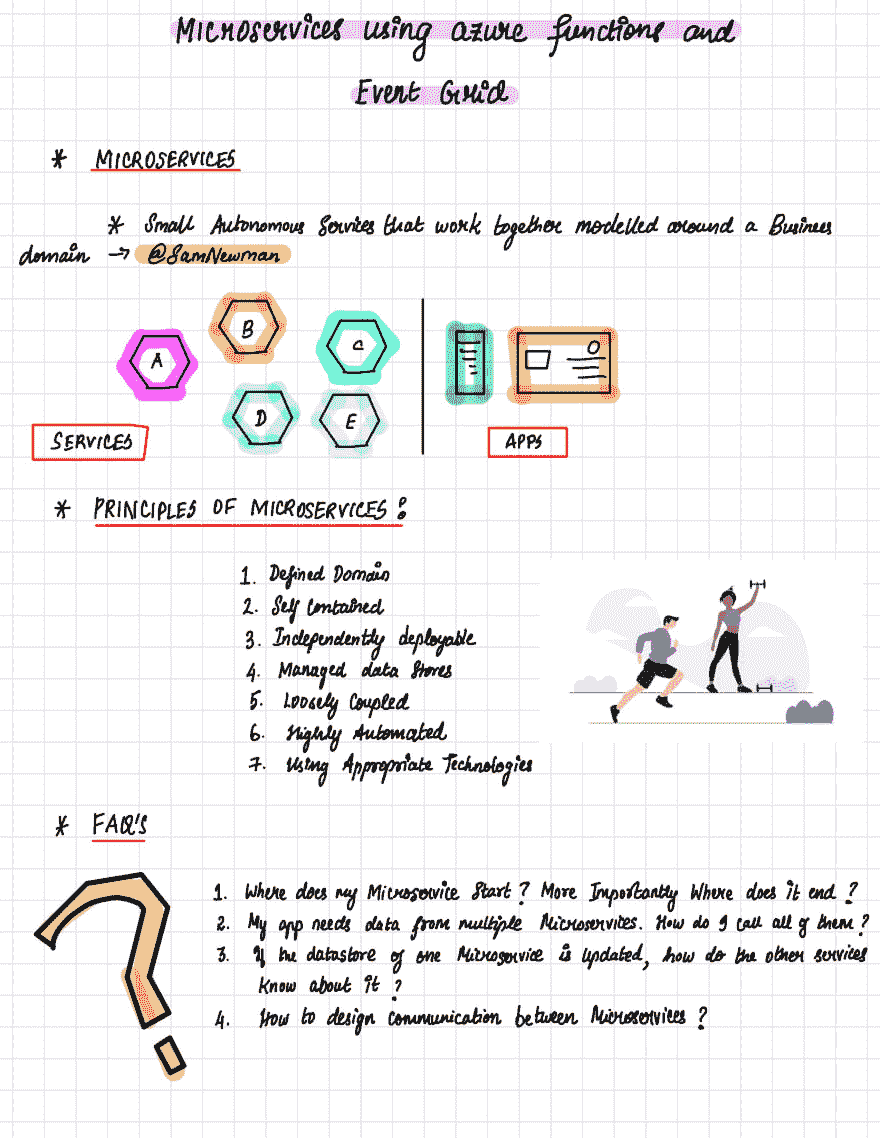 Microservices using azure functions and
Event Grid
* MICROSERVICES
* Small Autonomous Services that work together modelled around a Business
domain → @SamNewman
A
B
C
D
E
SERVICES
APPS
* PRINCIPLES OF MICROSERVICES :
1. Defined Domain
2. Self Contained
3. Independently deployable
4. Managed data Stores
5. Loosely Coupled
6. Highly Automated
7. Using Appropriate Technologies
* FAQ'S
1. Where does my Microservice Start ? More Importantly Where does it end ?
2. My app needs data from multiple Microservices. How do I call all of them ?
3. If the datastore of one Microservice is updated, how do the other services
know about it ?
4. How to design communication between Microservices ?